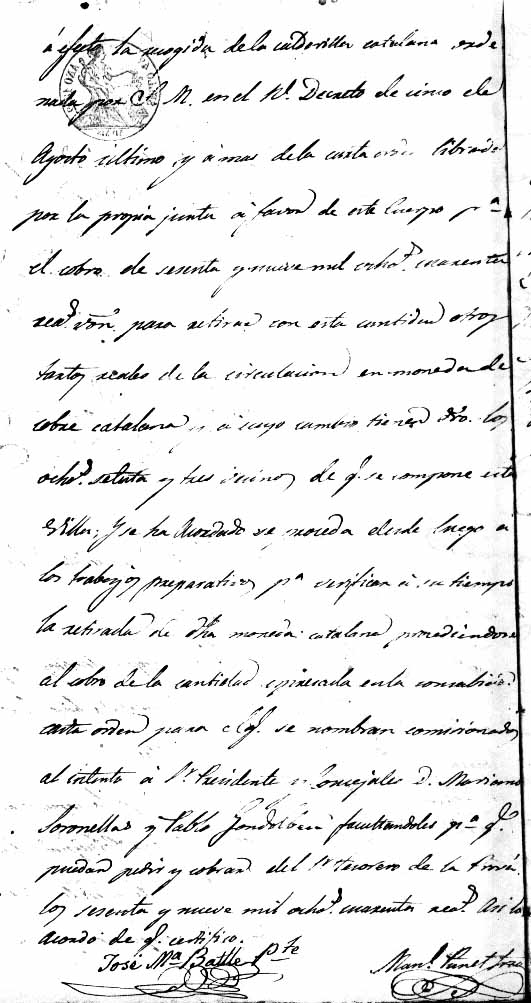 á efecto la recogida de la calderilla catalana orde
nada por S. M. en el Rl. Decreto de cinco de
Agosto último, y á mas de la carta orden librada
por la propia junta á favor de este Cuerpo pa.
el cobro de sesenta y nueve mil ochos. cuarenta
reas. von. para retirar con esta cantidad otros
tantos reales de la circulacion en moneda de
cobre catalana y á cuyo cambio tienen dro. los
ochos. setenta y tres vecinos de q. se compone esta
Villa; Y se ha Acordado se proceda desde luego a
los trabajos preparativos pa. verificar á su tiempo
la retirada de dha moneda catalana procediendose
al cobro de la cantidad espresada en la consabida
carta orden para el q. se nombran comisionados
al intento á Sr. Presidente y Concejales D. Mariano
Soronellas y Pablo facultandoles pa. q.
puedan pedir y cobrar del Sr. tesorero de la Prova.
los sesenta y nueve mil ochos. cuarenta reas. Asi lo
Acordó de q. certifico.
José Ma. Batlle Pte Manl. Punet